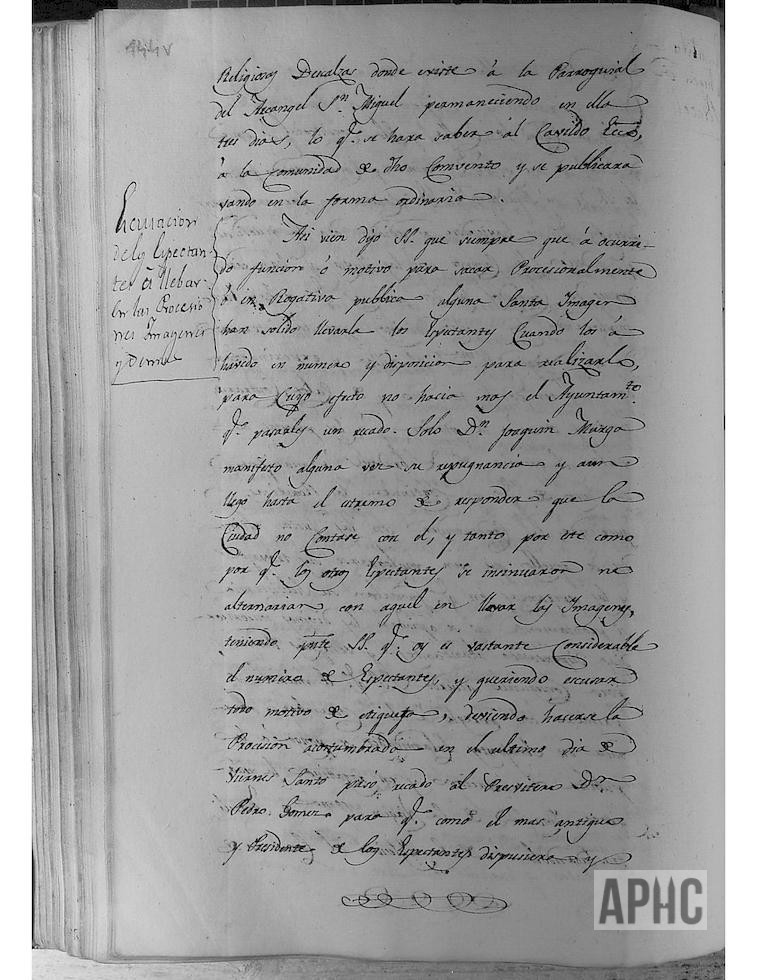 144v
Religiosas Descalzas donde existe â la Parroquial
del Arcangel Sn. Miguel permaneciendo en ella
tres dias, lo qe. se hara saber âl Cavildo Ecco,
â la Comunidad de dho Comvento y se publicara
vando en la forma ordinaria.
de los Espectan
tes â llebar
en las Procesio
nes Imagenes
y demas
Asi vien dijo SS. que siempre que â ocurri-
do funcion ô motivo para sacar Procesionalmente
ô en Rogativa publica alguna Santa Imagen
han solido llevarla los Espectantes Cuando los â
havido en numero y disposicion para realizarlo,
para Cuyo efecto no hacia mas el Ayuntamte.
qe. pasarles un recado. Solo Dn. Joaquin Marga
manifesto alguna vez su repugnancia y aun
llego hasta el estremo de responder que la
Ciudad no Contase con el, y tanto por este como
por qe. los otros Espectantes se insinuaron no
alternarian con aquel en llevar las Imagenes,
teniendo pnte SS. qe. oy es vastante Considerable
el numero de Espectantes, y queriendo escusar
todo motivo de etiqueta, deviendo hacerse la
Procesion acostumbrada en el ultimo dia de
Viernes Santo paso recado al Presvitero Dn.
Pedro Gomez para qe. como el mas antiguo
y Presidente de los Espectantes dispusiere y
APHC